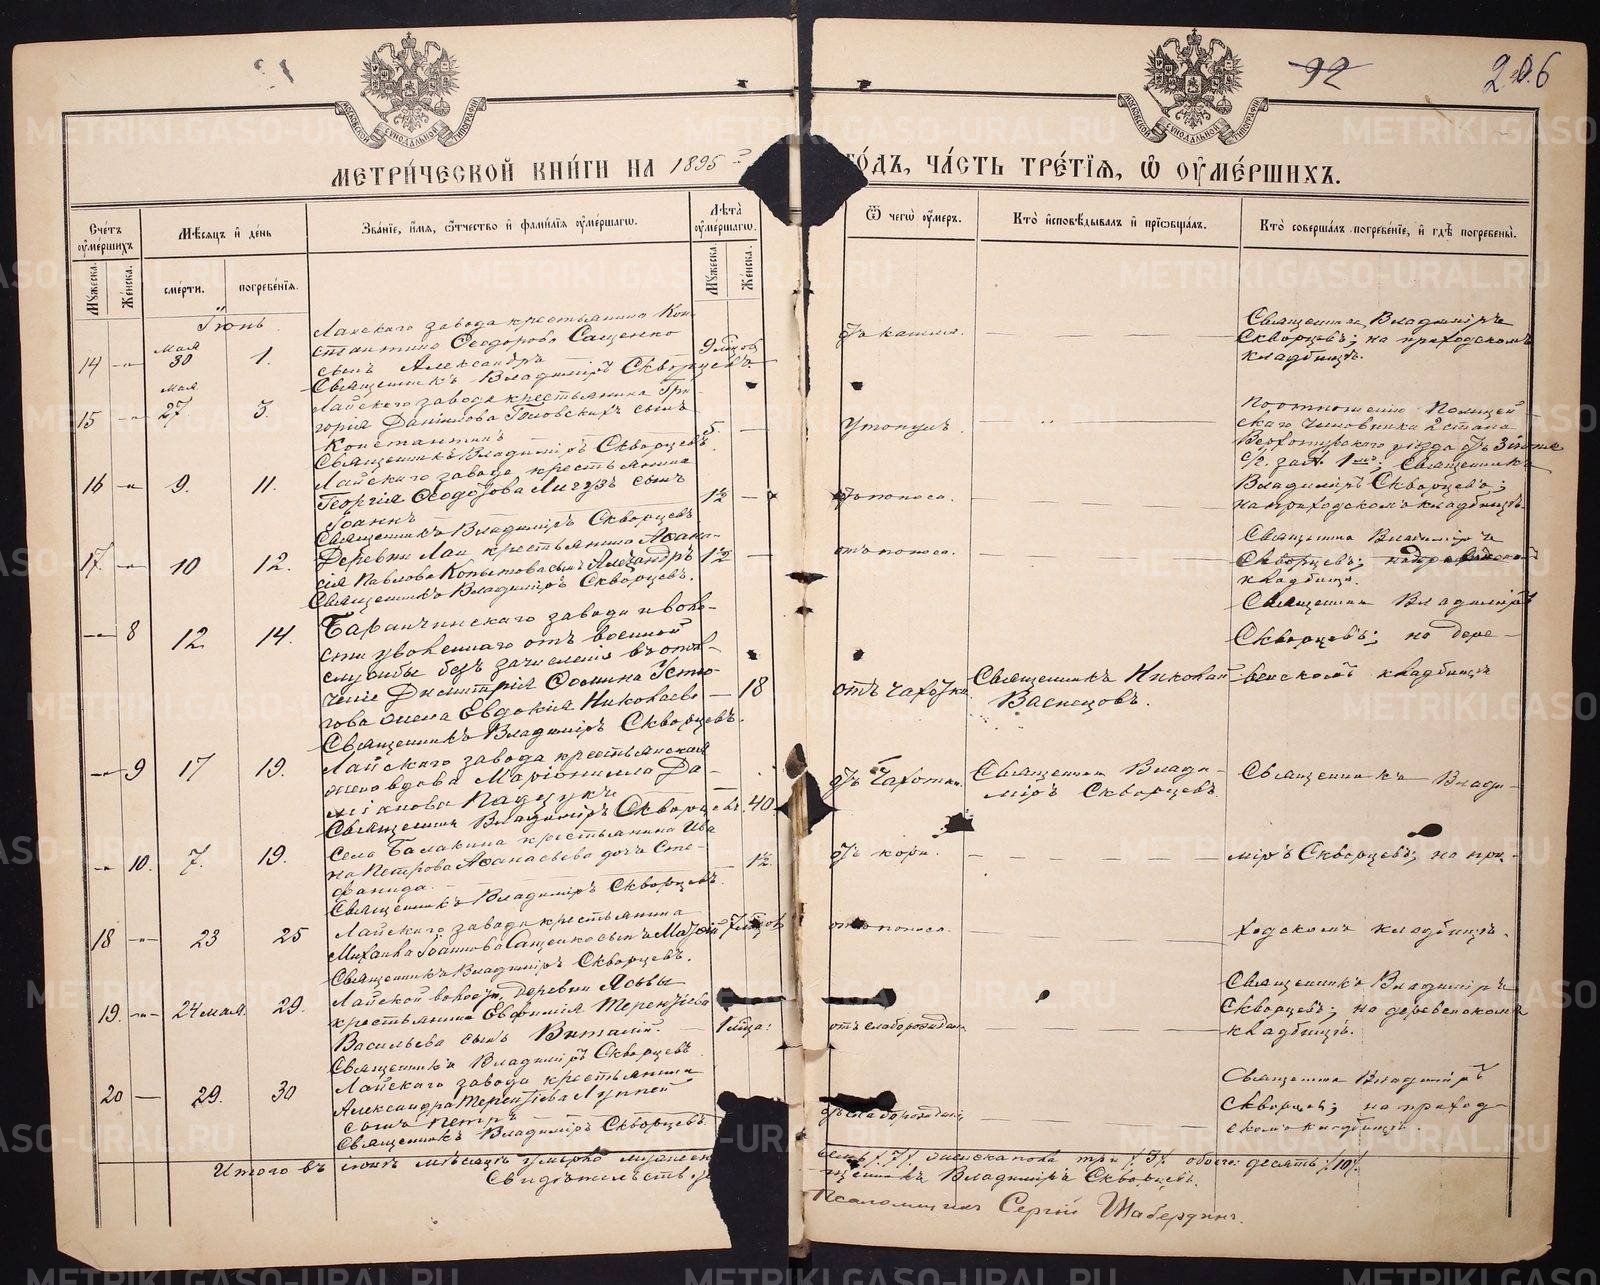 92
206
МЕТРИЧЕСКОЙ КНИГИ НА 1895 ГОДЪ, ЧАСТЬ ТРЕТІЯ, Ѿ ОУМЕРШИХЪ.
Счетъ оумершихъ
Мужеска.
Женска.
Мѣсяцъ и день
смерти.
погребенія.
Званіе, имя, ѿчество и фамилія оумершагѡ.
Лѣта оумершагѡ.
Мужеска.
Женска.
Ѿ чегѡ оумеръ.
Кто исповѣдывалъ и пріобщалъ.
Кто совершалъ погребеніе, и гдѣ погребены.
Іюнь
14 Мая 30 1.
Лайскаго завода крестьянина Кон-
стантина Ѳеодорова Сащенко
сынъ Александръ
9 мцовъ
Священникъ Владиміръ Скворцевъ
отъ кашля.
Священникъ Владиміръ
Скворцевъ; на приходскомъ
кладбищѣ.
15 Мая 27 3.
Лайскаго завода крестьянина Гри-
горія Даніилова сынъ
Константинъ
5.
Священникъ Владиміръ Скворцевъ
Утонулъ.
По отношенію Полицей-
скаго Чиновника 2 стана
Верхотурскаго уѣзда отъ 3 іюня
Священникъ
Владиміръ Скворцевъ;
на приходскомъ кладбищѣ.
16 9. 11.
Лайскаго завода крестьянина
Георгія сынъ
Іоаннъ
1½
Священникъ Владиміръ Скворцевъ
отъ поноса.
17 10 12.
Деревни Лаи крестьянина Аѳана-
сія Павлова Копытова сынъ Александръ
1½
Священникъ Владиміръ Скворцевъ.
отъ поноса.
Священникъ Владиміръ
Скворцевъ;
кладбищѣ.
8 12. 14.
Баранчинскаго завода
уволеннаго отъ военной
службы безъ зачисленія въ опол-
ченіе Димитрія Ѳомина Устю-
гова жена Евдокія Николаева
18
Священникъ Владиміръ Скворцевъ.
отъ чахотки
Священникъ Николай
Васнецовъ.
Священникъ Владиміръ
Скворцевъ; на дере-
венскомъ кладбищѣ
9 17 19.
Лайскаго завода крестьянская
вдова Маріонилла Да-
міанова Падчукъ
40
Священникъ Владиміръ Скворцевъ
отъ чахотки.
Священникъ Влади-
міръ Скворцевъ
Священникъ Влади-
10. 7. 19.
Села Балакина крестьянина Ива-
на Петрова Аѳанасьева дочь Сте-
фанида.
1½
Священникъ Владиміръ Скворцевъ.
отъ кори.
міръ Скворцевъ; на при-
18 23 25
Лайскаго завода крестьянина
Михаила Іоаннова Сащенко сынъ Матѳій 7 мцовъ
Священникъ Владиміръ Скворцевъ.
отъ поноса.
ходскомъ кладбищѣ.
19. 24 мая. 29.
Лайской волости, деревни Ясьвы
крестьянина Евфимія Терентіева
Васильева сынъ Виталій.
1 мца.
Священникъ Владиміръ Скворцевъ
отъ слаборожден.
Священникъ Владиміръ
Скворцевъ; на деревенскомъ
кладбищѣ.
20 29. 30
Лайскаго завода крестьянина
Александра Терентіева
сынъ Петръ
Священникъ Владиміръ Скворцевъ.
отъ слаборожден.
Священникъ Владиміръ
Скворцевъ; на приход-
скомъ кладбищѣ.
Итого въ іюнѣ мѣсяцѣ умерло мужеска
семь /7/, женска пола три /3/, обоего: десять /10/.
Свидѣтельств
Владиміръ Скворцевъ.
Псаломщикъ Сергій Шабердинъ.
METRIKI.GASO-URAL.RU